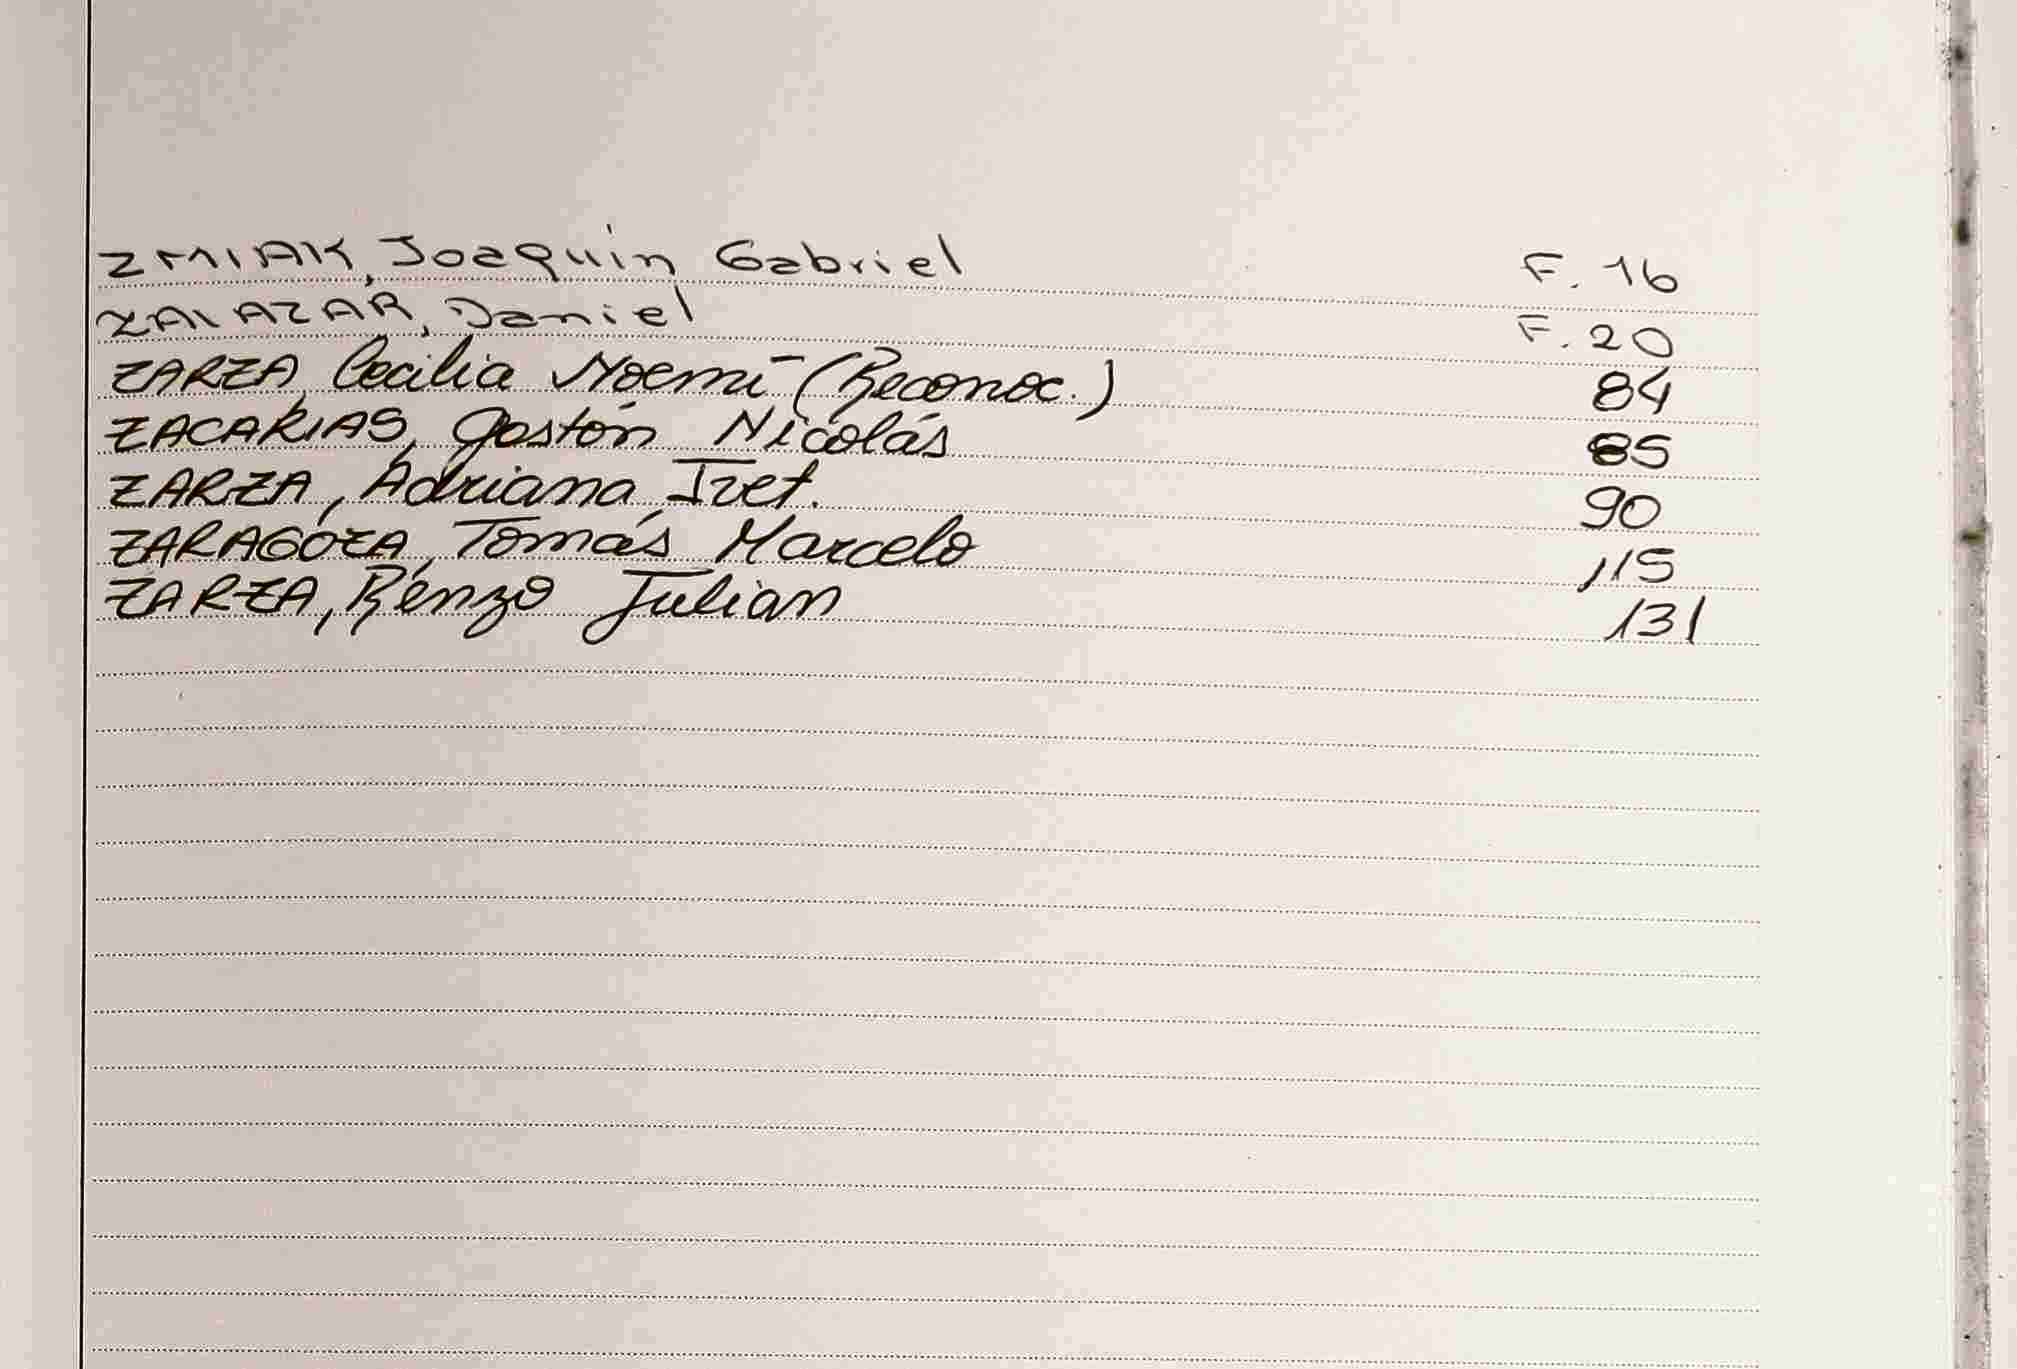 ZMIAK, Joaquin Gabriel F. 16
ZALAZAR, Daniel F. 20
ZARZA, Cecilia Noemí (Reconoc.) 84
ZACARIAS, Gastón Nicolás 85
ZARZA, Adriana Ivet. 90
ZARAGOZA, Tomás Marcelo 115
ZARZA, Renzo Julian 131